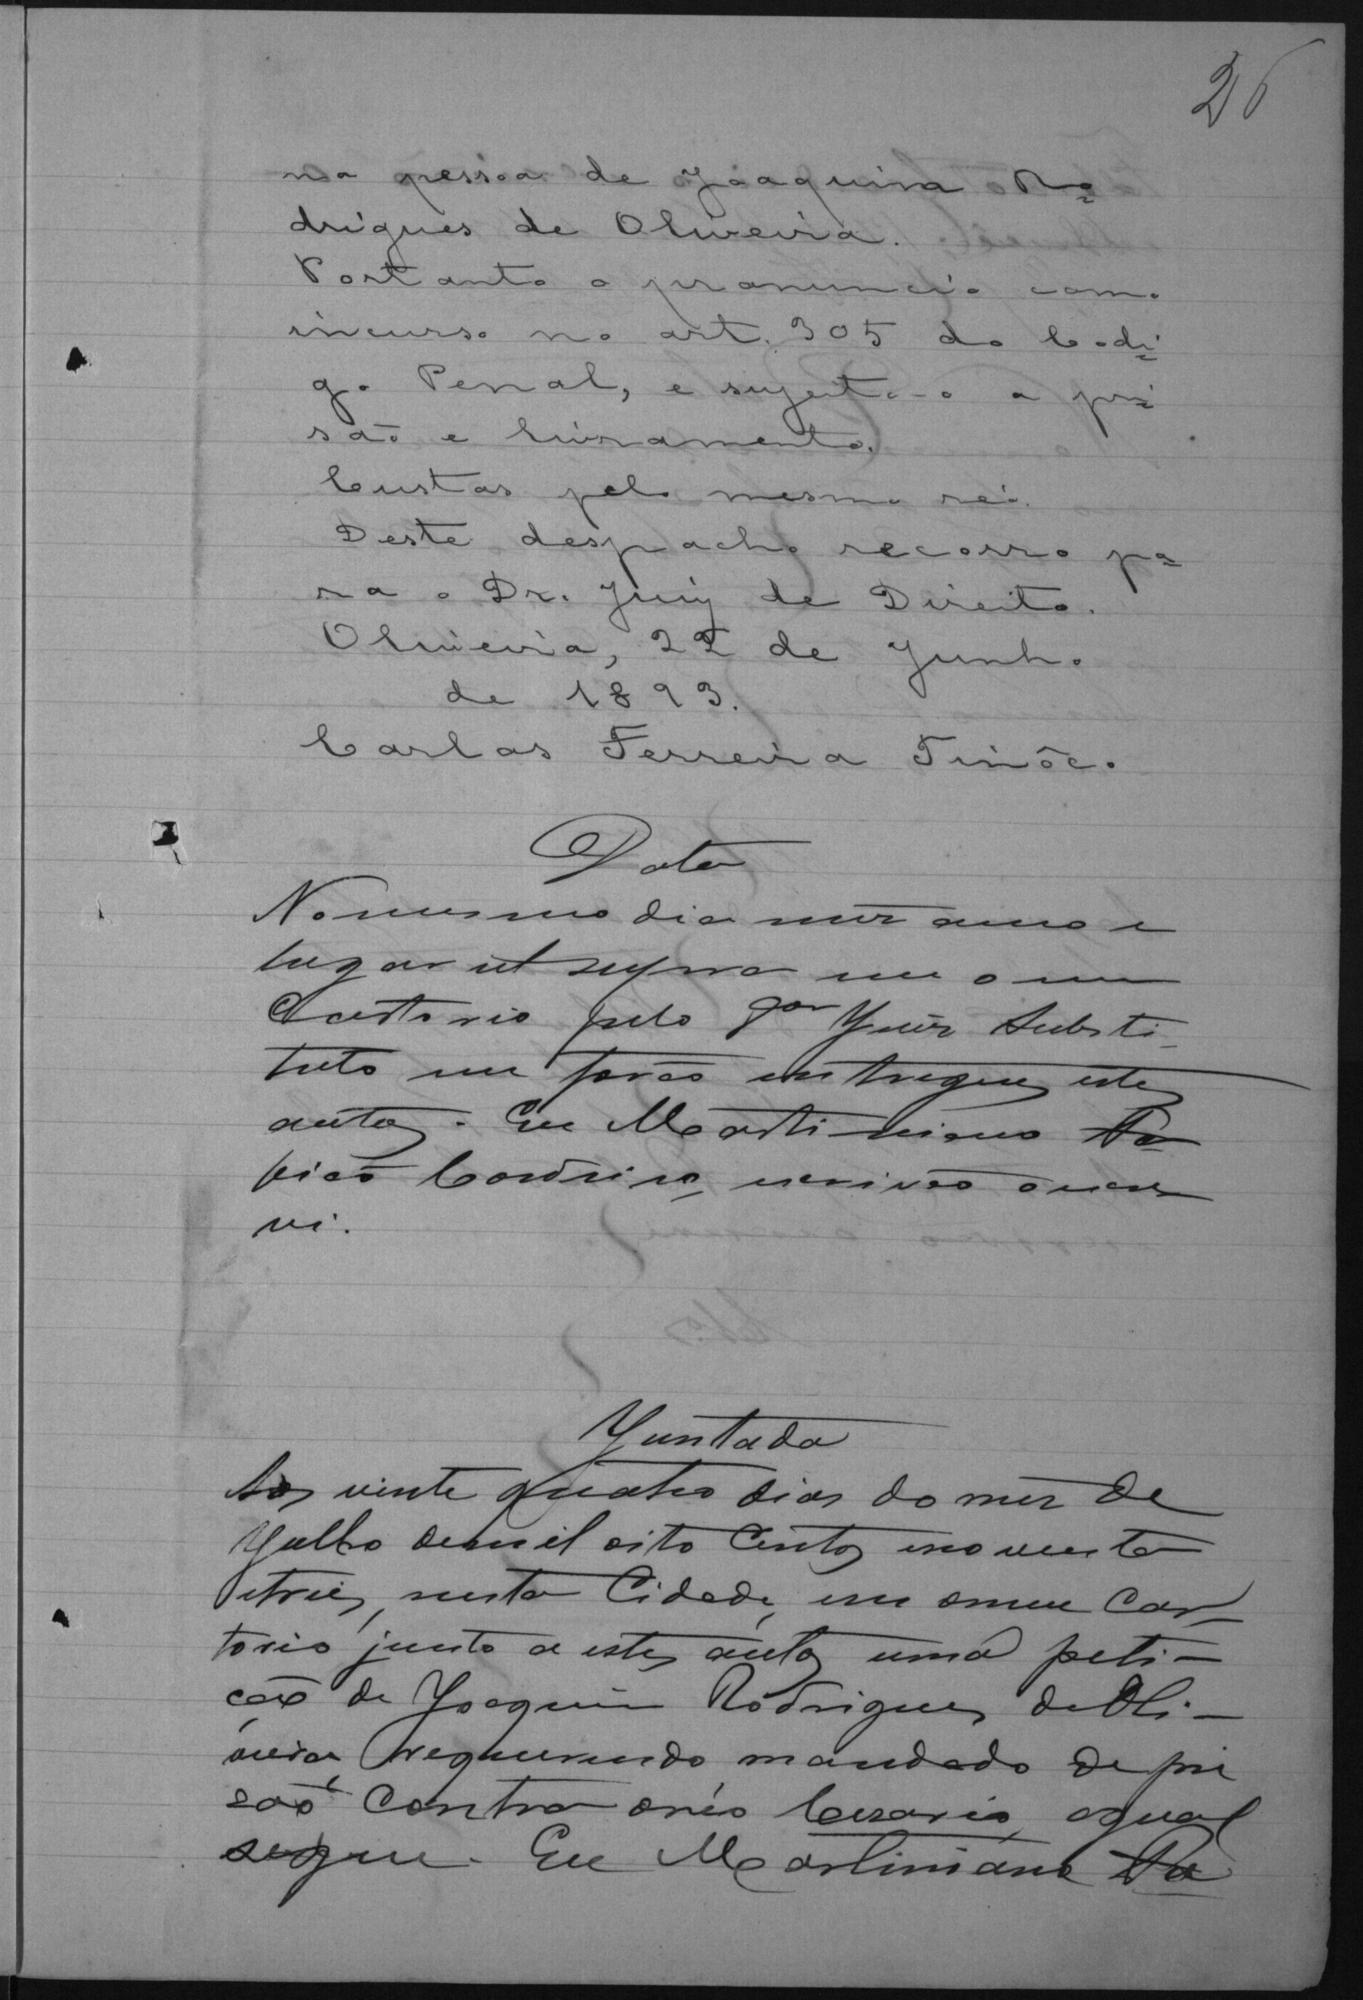 26
na pessoa de Joaquim Ro=
drigues de Oliveira.
Portanto o pronuncio como
incurso no art. 305 do Codi=
go Penal, e sujeito-o a pri=
são e livramento.
Custas pelo mesmo réo.
Deste despacho recorro pa=
ra o Dr. Juiz de Direito.
Oliveira, 22 de Junho
de 1893.
Carlos Ferreira Tinôco.
Data
No mesmo dia mez anno e
lugar ut supra em o meu
Cartorio pelo Juiz Substi-
tuto me forão entregues estes
autos. Eu Martiniano
Cordeiro, escrivão o escre
vi.
Juntada
Aos vinte quatro dias do mez de
Julho de mil oito Centos e noventa
e tres, nesta Cidade, em o meu Car-
torio junto a estes autos uma peti-
ção de Joaquim Rodrigues de Oli-
veira, requerendo mandado de pri
zão Contra o réo Cezario, o qual
segue. Eu Martiniano